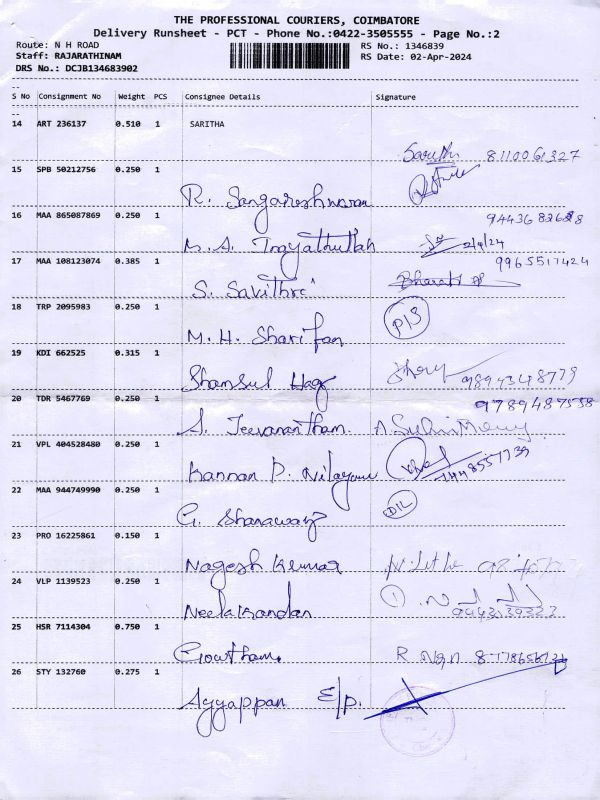 THE PROFESSIONAL COURIERS, COIMBATORE
Delivery Runsheet - PCT - Phone No.:0422-3505555 - Page No.:2
Route: N H ROAD RS No.: 1346839
Staff: RAJARATHINAM RS Date: 02-Apr-2024
DRS No.: DCJB134683902
S No Consignment No Weight PCS Consignee Details Signature
14 ART 236137 0.510 1 SARITHA
8110061327
15 SPB 50212756 0.250 1
R. Sangareshwaran
16 MAA 865087869 0.250 1
M. A. Inayathullah 2/4/24
17 MAA 108123074 0.385 1 9965517424
S. Savithri Bharati
18 TRP 2095983 0.250 1
M. H. Sharifan P/S
19 KDI 662525 0.315 1
Shamsul Haq 9894348779
20 TDR 5467769 0.250 1 9789487558
S. Jeevanantham.
21 VPL 404528480 0.250 1
Kannan D. Nilayam
22 MAA 944749990 0.250 1 DIL
G. Sharavan
23 PRO 16225861 0.150 1
Nagesh Kumar
24 VLP 1139523 0.250 1
Neelakandan
25 HSR 7114304 0.750 1
Gowtham.
26 STY 132760 0.275 1
Ayyappan E/p.